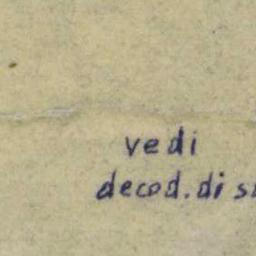 vedi
decod. di